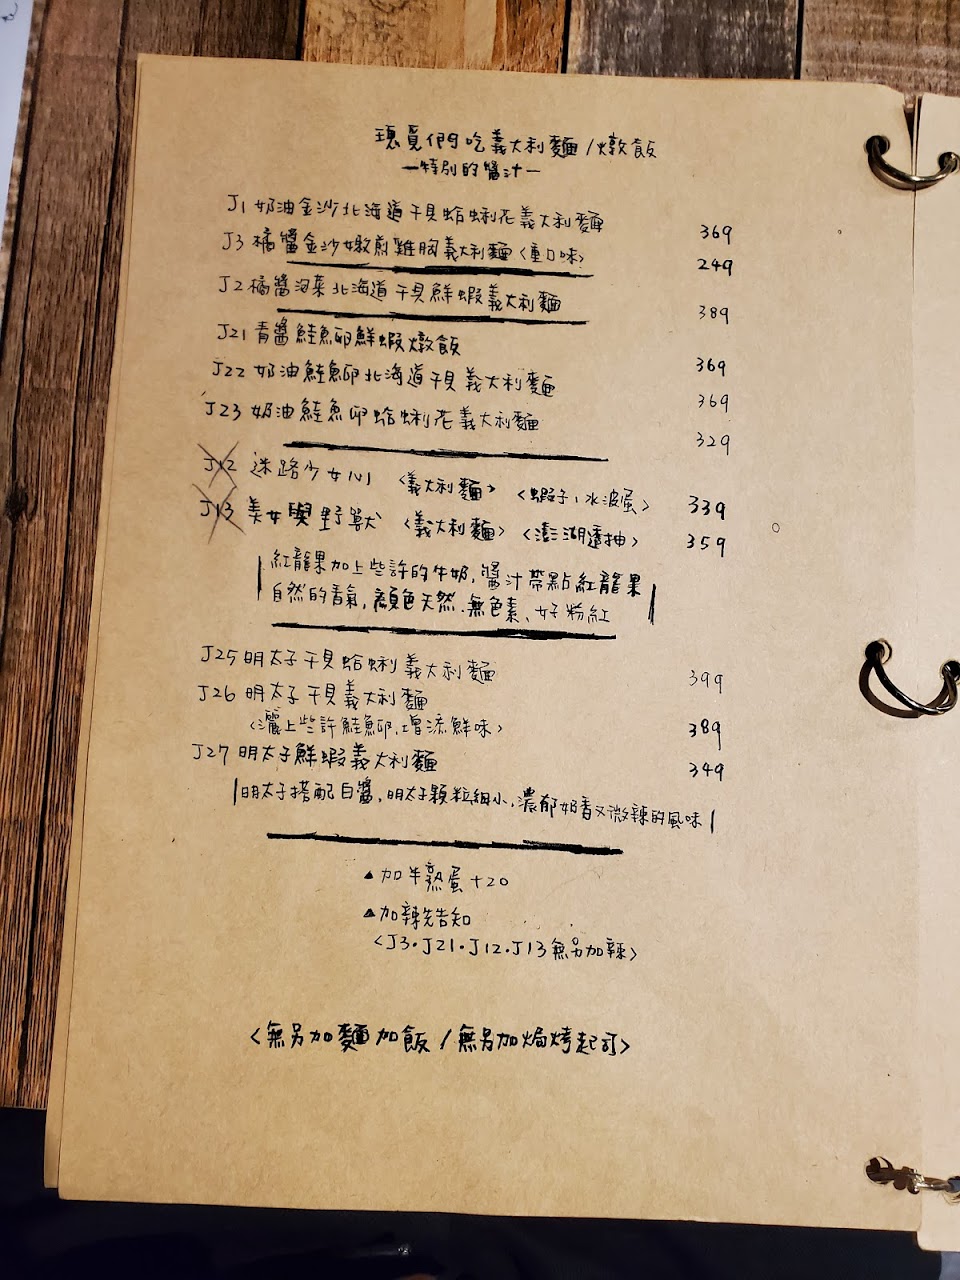 瓌覓們吃義大利麵/燉飯
—特別的醬汁—
J1 奶油金沙北海道干貝蛤蜊花義大利麵 369
J3 橘醬金沙嫩煎雞胸義大利麵〈重口味〉 249
J2 橘醬泡菜北海道干貝鮮蝦義大利麵 389
J21 青醬鮭魚卵鮮蝦燉飯 369
J22 奶油鮭魚卵北海道干貝義大利麵 369
J23 奶油鮭魚卵蛤蜊花義大利麵 329
J12 迷路少女心 〈義大利麵〉 〈蝦子、水波蛋〉 339
J13 美女與野獸 〈義大利麵〉 〈澎湖透抽〉 359
紅龍果加上些許的牛奶,醬汁帶點紅龍果
自然的香氣,顏色天然.無色素、好粉紅
J25 明太子干貝蛤蜊義大利麵 399
J26 明太子干貝義大利麵
〈灑上些許鮭魚卵,增添鮮味〉 389
J27 明太子鮮蝦義大利麵 349
明太子搭配白醬,明太子顆粒細小,濃郁奶香又微辣的風味
▲加半熟蛋+20
▲加辣先告知
〈J3.J21.J12.J13無另加辣〉
〈無另加麵加飯/無另加焗烤起司〉